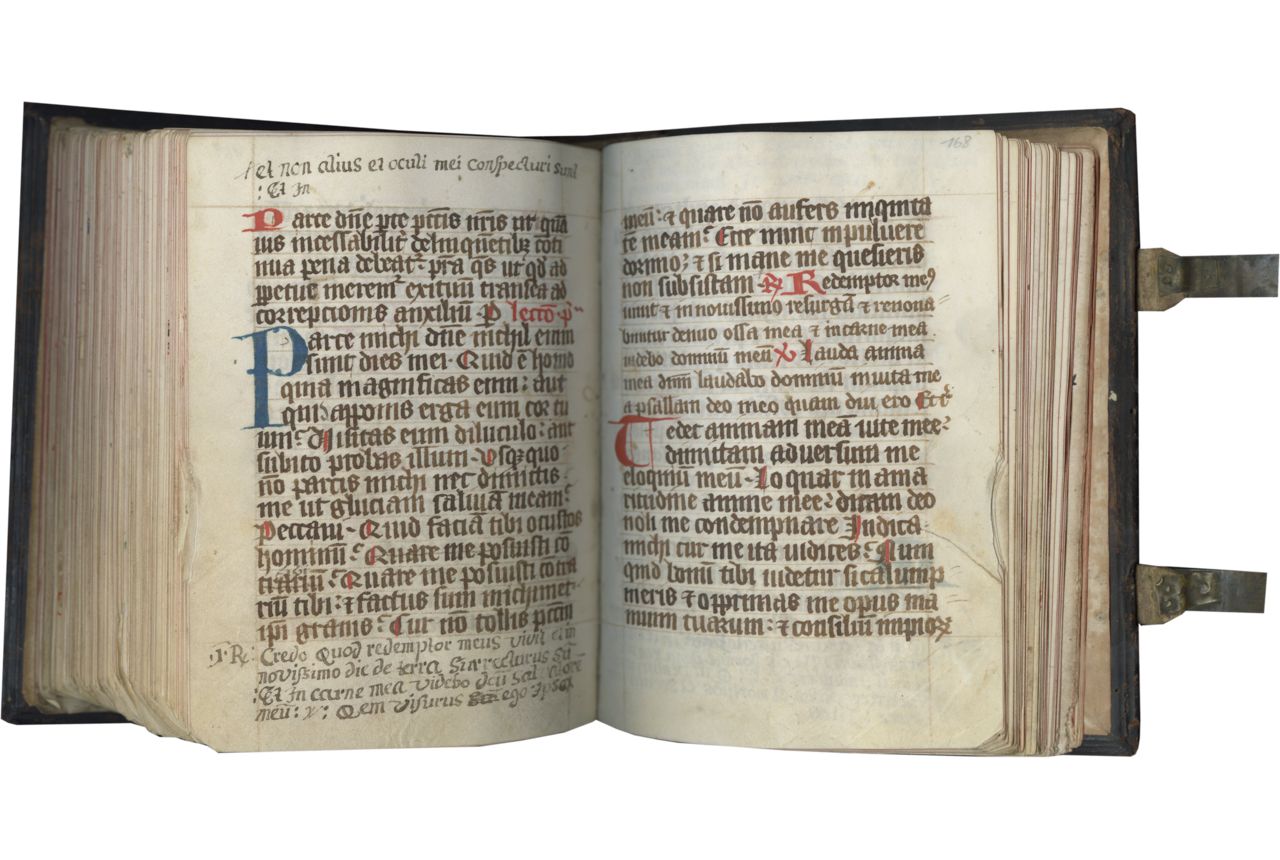 et non alius et oculi mei conspecturi sunt
: Et In
Parce dn̄e pctīs nr̄is ut quā
uis incessabilit̄ delinquētibꝫ cōti
nua pena debeat̄: p̄ra q̄s ut qd̄ ad
ꝑpetuū meremᷣ exitiuū transea ad
correpcionis auxiliū· lectō p̄
Parce michi dn̄e nichil enim
sunt dies mei· Quid ē homo
quia magnificas eum: aut
quid apponis erga eum cor tu
um: Uisitas eum diluculo: aut
subito probas illum· Usꝫquo
nō parcis michi nec dimittis
me ut gluciam saliuā meam:
Peccaui· Quid faciā tibi o custos
hominū: Quare me posuisti cō
trariū: Quare me posuisti cōtra
riū tibi: ⁊ factus sum michimet
ipi grauis: Cur nō tollis pctm̄
R: Credo Quod redemptor meus vivit et in
novissimo die de terra Surrecturus Sū
: Et In carne mea videbo deū Salvatorē
meū: V: Qem visurus Sum ego Ipse
168
meū: ⁊ quare nō aufers iniquita
tē meam: Ecce nunc in puluere
dormio; ⁊ si mane me quesieris
non subsistam ℟ Redemptor meꝰ
uiuit ⁊ in nouissimo resurgā ⁊ renoua
buntur denuo ossa mea ⁊ in carne mea
uidebo dominū meū ℣ Lauda anima
mea dnm̄ laudabo dominū in uita me
a psallam deo meo quam diu ero Et
Tedet animam meā uite mee:
dimittam aduersum me
eloquiū meū· Loquar in ama
ritudine anime mee: dicam deo
noli me condempnare Indica
michi cur me ita iudices: Num
quid bonū tibi uidetur si calump
nieris ⁊ opprimas me opus ma
nuum tuarum: ⁊ consiliū impioꝝ